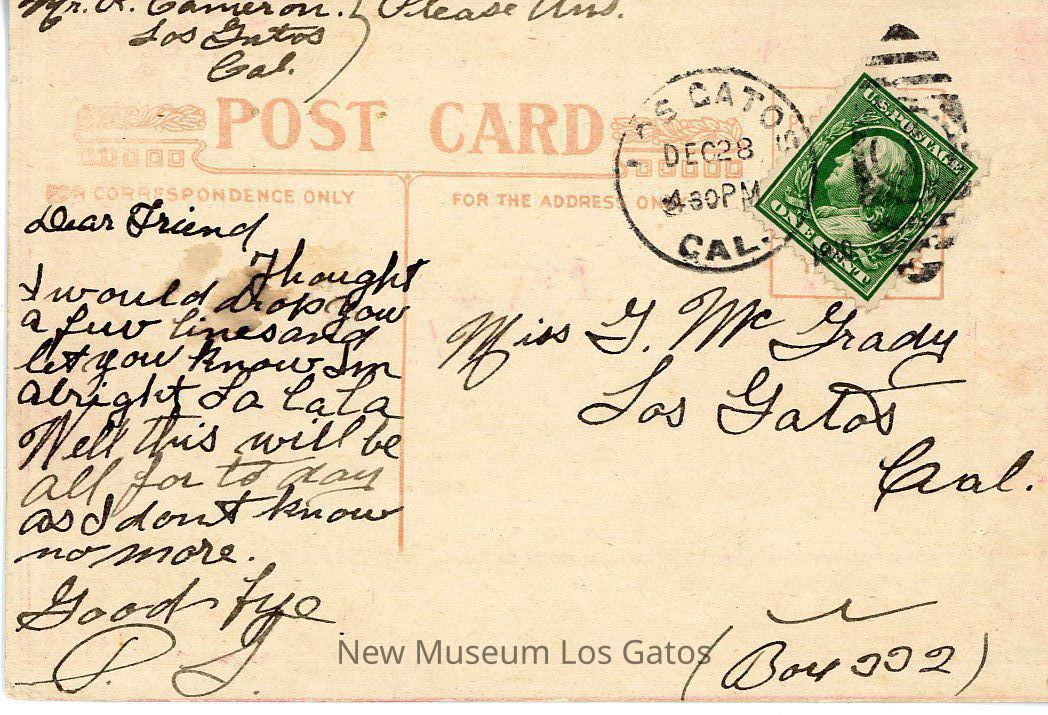 Mr. R. Cameron. } Please Ans.
Los Gatos
Cal.
POST CARD
FOR CORRESPONDENCE ONLY
FOR THE ADDRESS ON
LOS GATOS
DEC 28
4 30 PM
CAL.
U.S. POSTAGE
ONE CENT
Dear Friend
Thought
I would drop you
a few lines and
let you know Im
alright La Lala
Well this will be
all for to day
as I dont know
no more.
Good bye
Miss G. Mc Grady
Los Gatos
Cal.
(Box 332)
New Museum Los Gatos